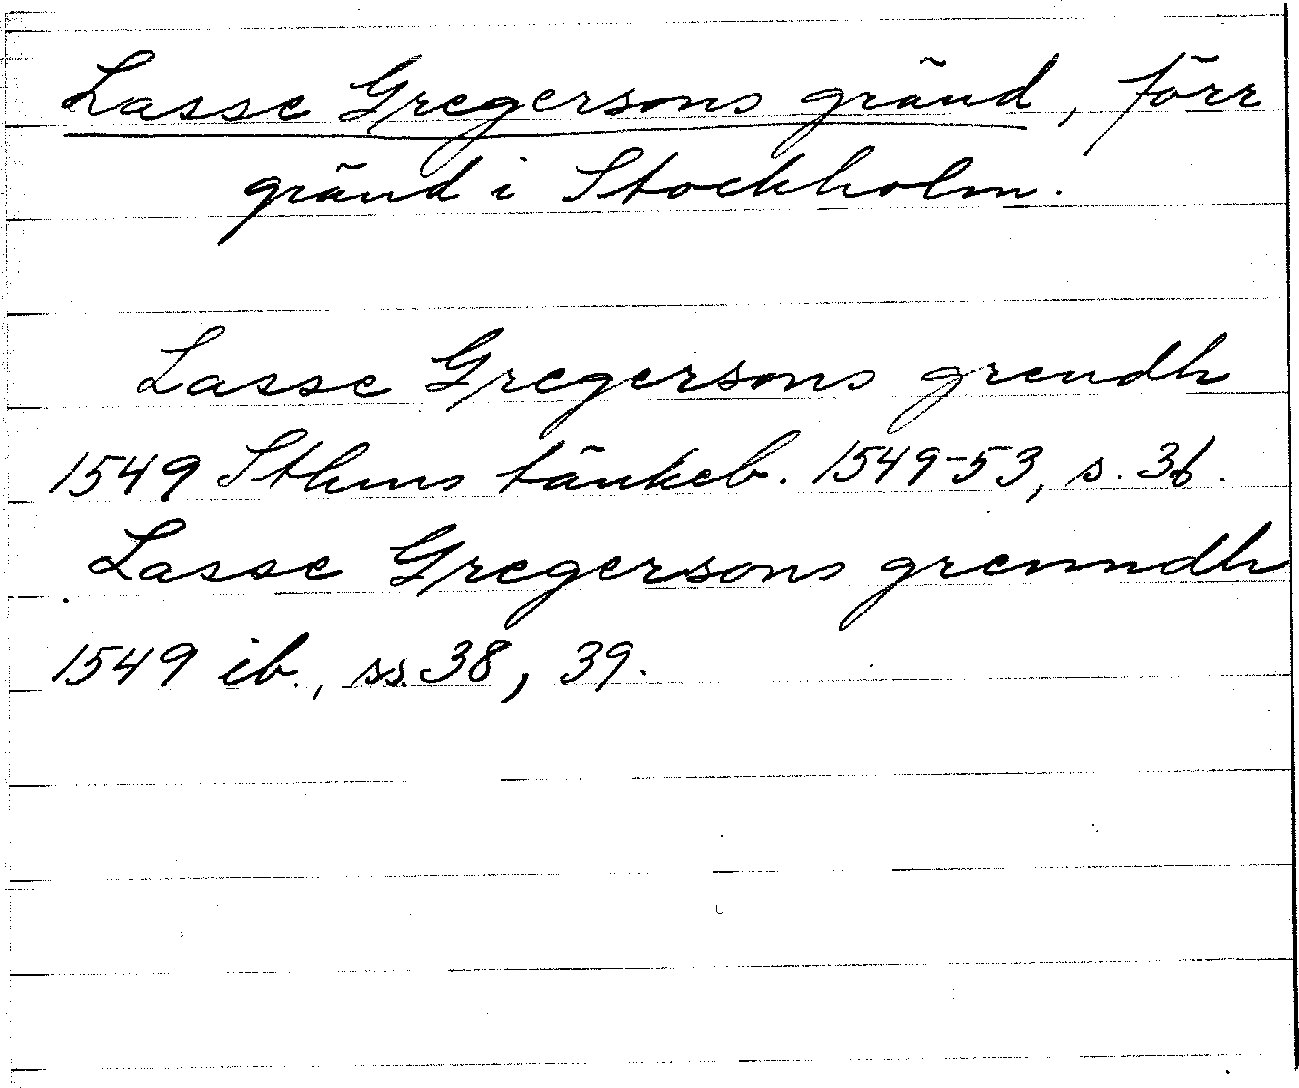 Lasse Gregersons gränd, förr
gränd i Stockholm.
Lasse Gregersons grendh
1549 Sthms tänkeb. 1549-53, s. 36.
Lasse Gregersons grenndh
1549 ib., ss. 38, 39.